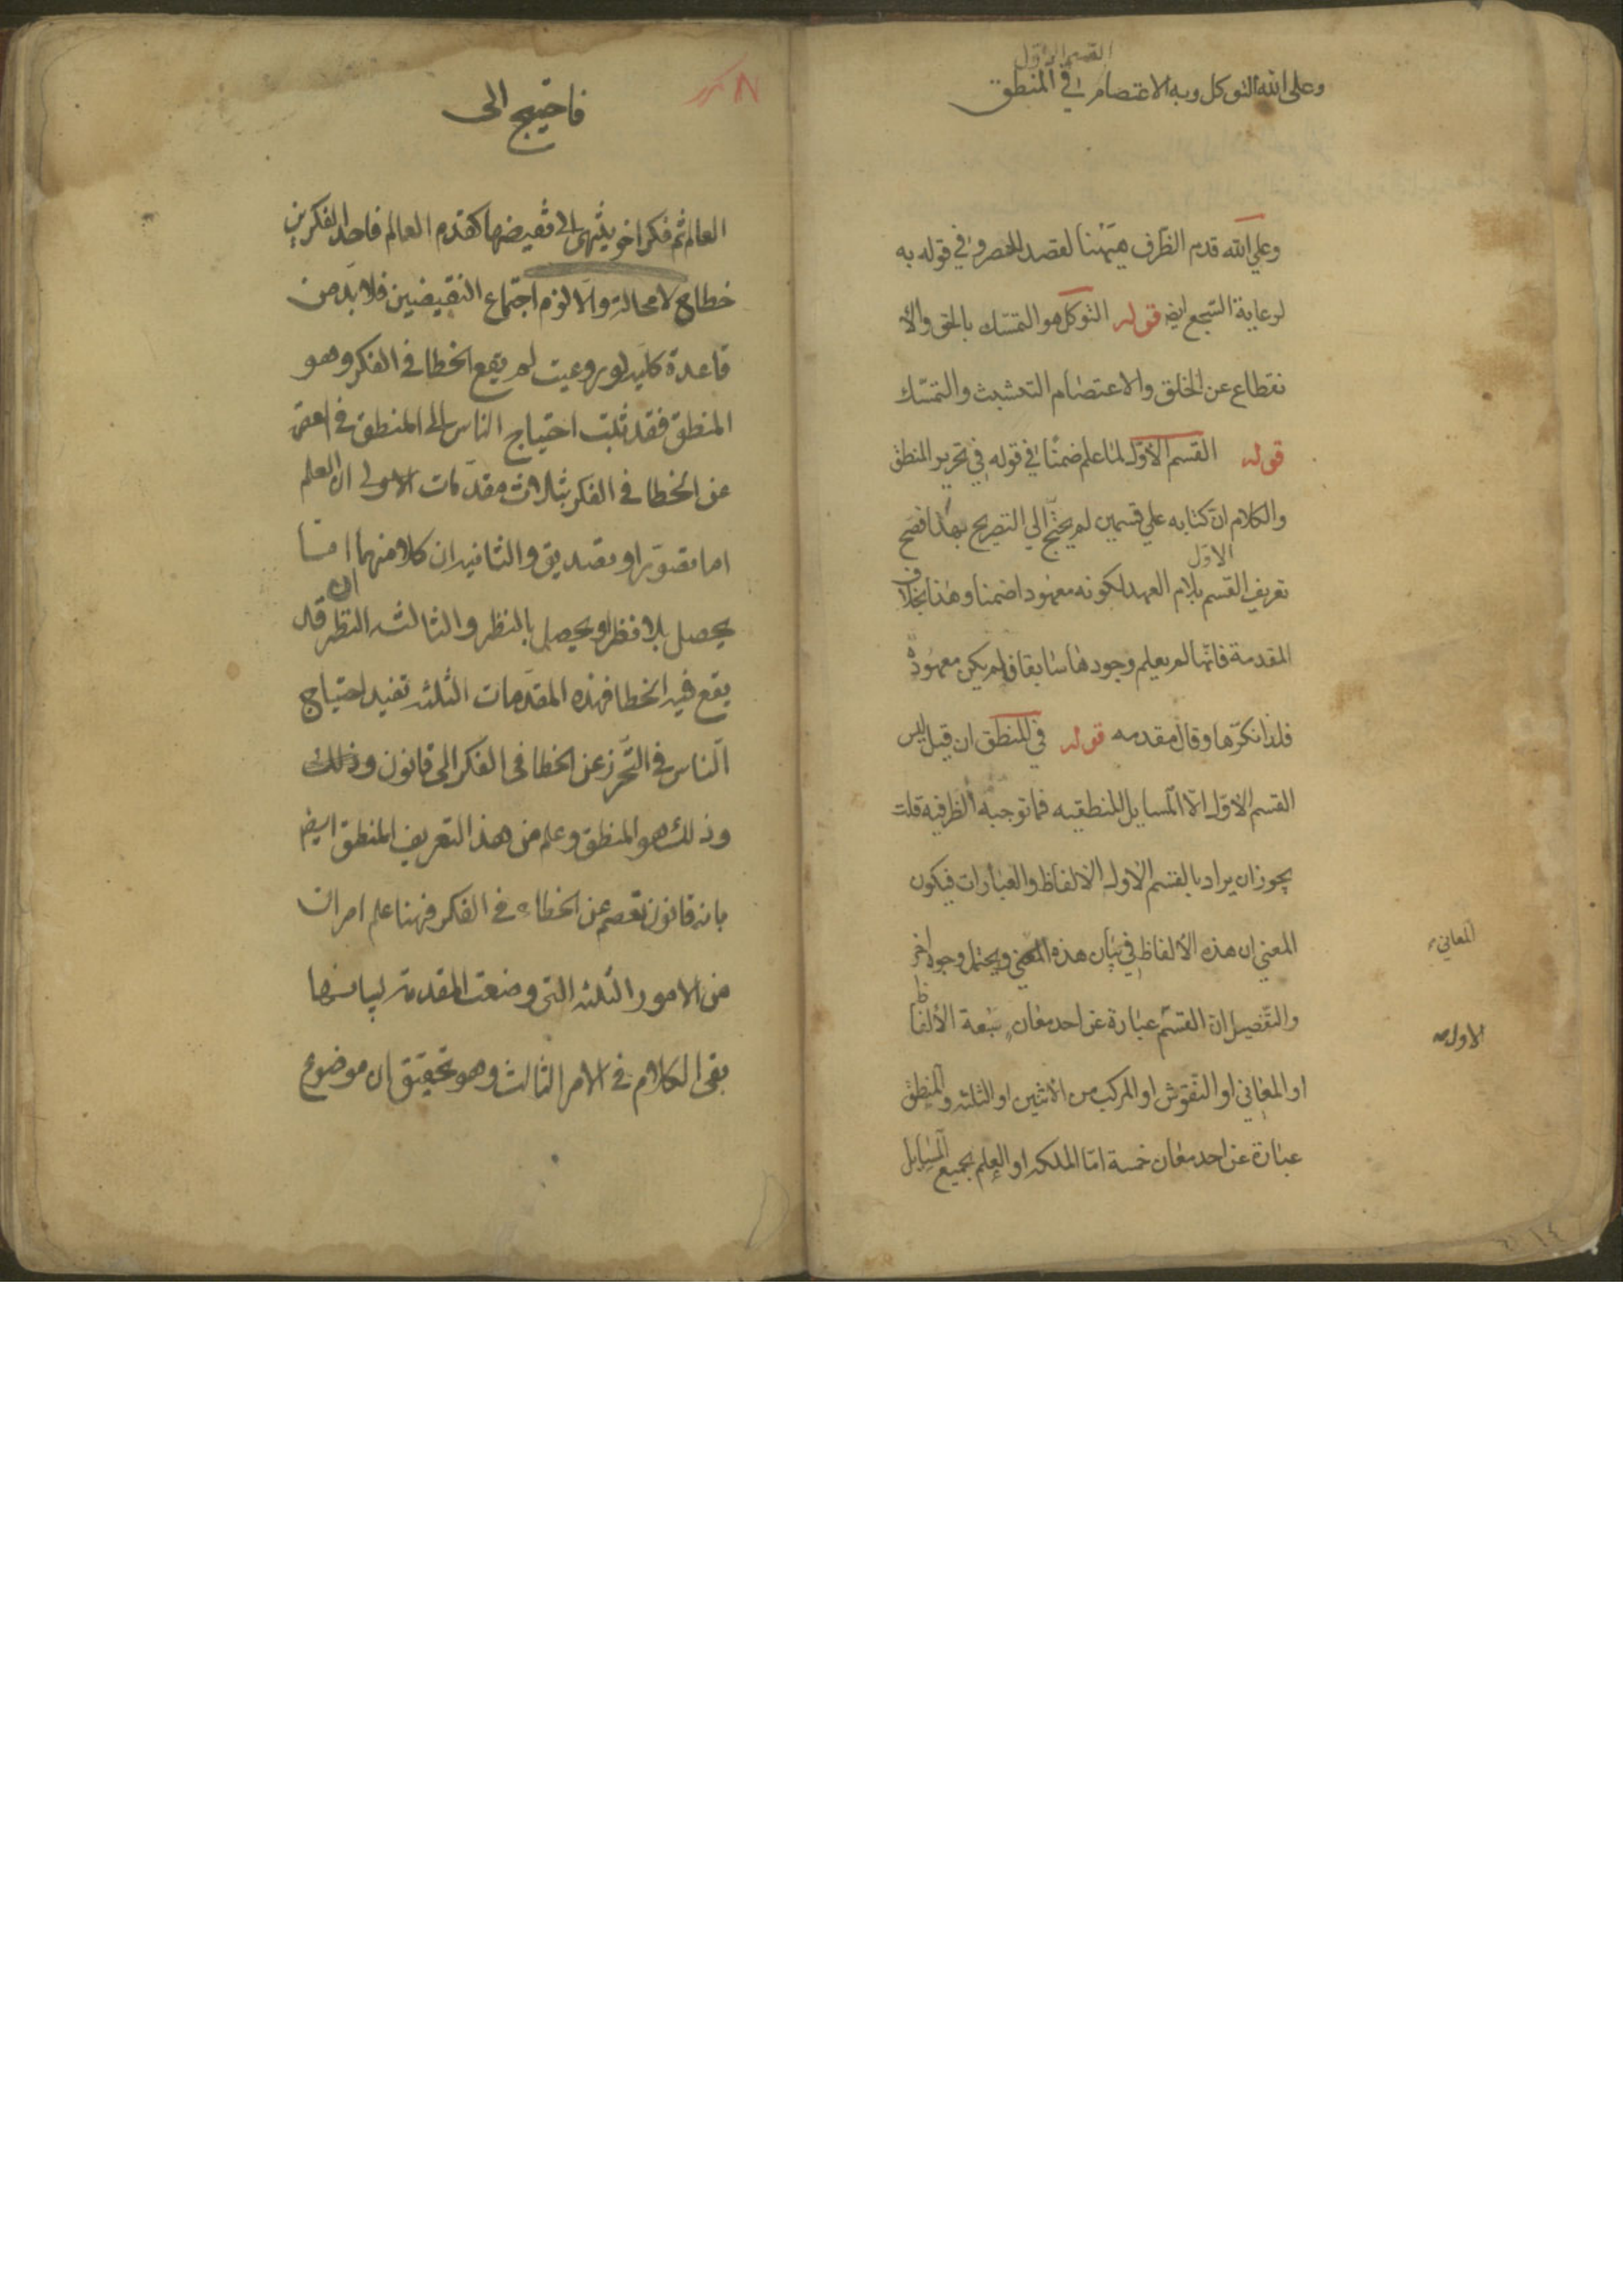 القسم الاول
وعلى الله التوكل وبه الاعتصام في المنطق
وعلي الله قدم الظرف ههنا لقصد الحصر وفي قوله به
لرعاية السجع ايض قوله التوكل هو التمسك بالحق والا
نقطاع عن الخلق والاعتصام التشبث والتمسك
قوله القسم الاول لما علم ضمنا في قوله في تحرير المنطق
والكلام ان كتابه علي قسمين لم يحتج الي التصريح بهذا فصح
الاول
تعريف القسم بلام العهد لكونه معهودا ضمنا وهذا بخلاف
المقدمة فانها لم يعلم وجودها سابقا فلم يكن معهودة
فلذا نكرها وقال مقدمه قوله في المنطق ان قيل ليس
القسم الاول الا المسايل المنطقيه فما توجيه الظرفية قلت
يجوز ان يراد بالقسم الاول الالفاظ والعبارات فيكون
المعني ان هذه الألفاظ في بيان هذه المعني ويحتمل وجوها اخر
المعاني
والتفصيل ان القسم عبارة عن احد معان سبعة الألفاظ
الاول
او المعاني او النقوش او المركب من الاثنين او الثلثه والمنطق
عبارة عن احد معان خمسة اما الملكه او العلم بجميع المسايل
فاحتيج الى
العالم ثم فكر اخر ينتهى الى نقيضها كقدم العالم فاحد الفكرين
خطاء لا محالة والا لزم اجتماع النقيضين فلا بد من
قاعدة كليه لو روعيت لم يقع الخطا في الفكر وهو
المنطق فقد ثبت احتياج الناس الى المنطق في العصمة
عن الخطا في الفكر بثلاث مقدمات الاولى ان العلم
اما تصور او تصديق والثانيه ان كلا منهما اما
ان
يحصل بلا نظر او يحصل بالنظر والثالثه النظر قد
يقع فيه الخطا فهذه المقدمات الثلثه تفيد احتياج
الناس في التحرز عن الخطا في الفكر الى قانون وذلك
وذلك هو المنطق وعلم من هذا التعريف المنطق ايض
بانه قانون تعصم عن الخطاء في الفكر فهنا علم امران
من الامور الثلثه التي وضعت المقدمة لبيانها
بقى الكلام في الامر الثالث وهو تحقيق ان موضوع